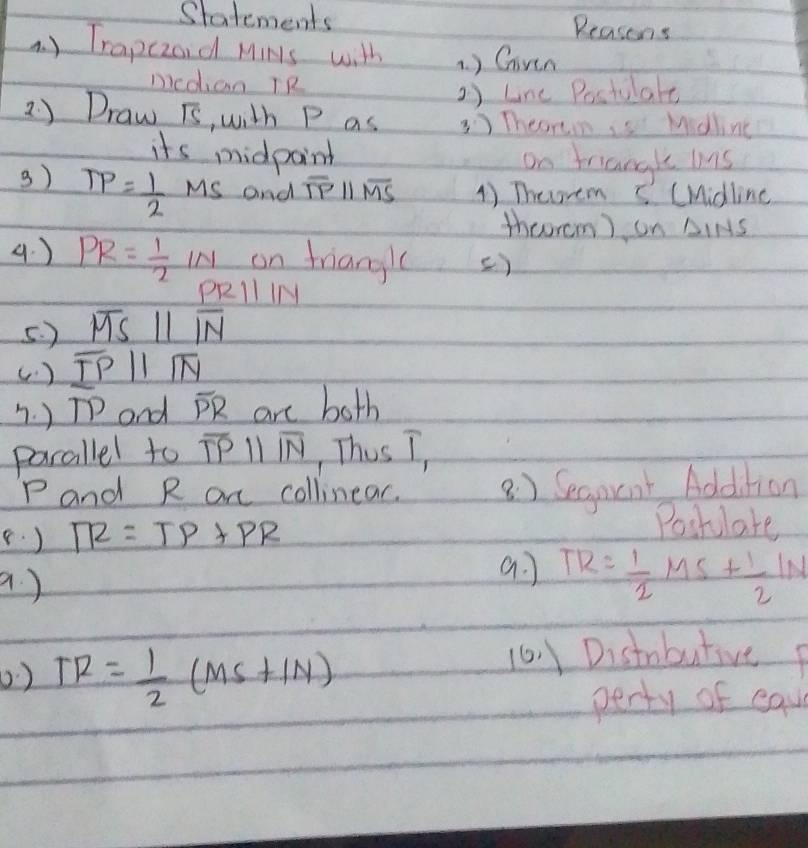 Statements
Reasons
1.) Trapezoid MINS with
median TR
1.) Given
2.) Draw IS, with P as
its midpoint
2) Line Postulate
3) TP = 1/2 MS and TP || MS
3) Theorem is Midline
on triangle IMS
4.) PR = 1/2 IN on triangle
PR || IN
4) Theorem 5 (Midline
theorem), on ΔINS
5.) MS || IN
5)
6.) TP || IN
7.) TP and PR are both
parallel to TP || IN, Thus T,
P and R are collinear.
8.) TR = TP + PR
8.) Segment Addition
Postulate
9.)
9.) TR = 1/2 MS + 1/2 IN
0.) TR = 1/2 (MS + IN)
10.) Distributive P
perty of equa